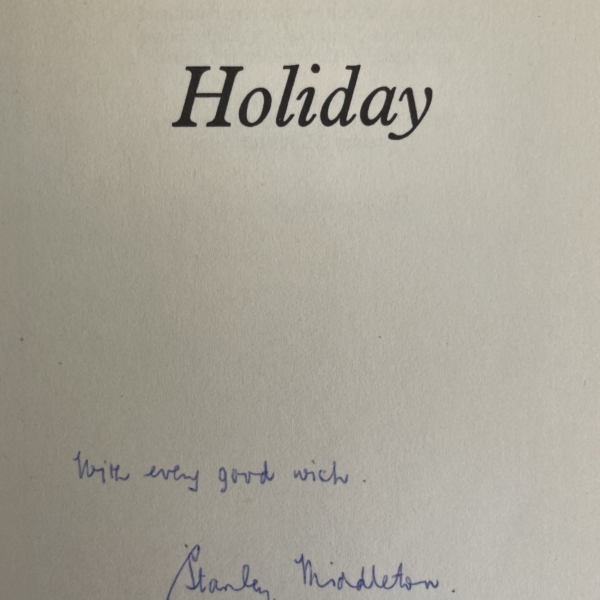 Holiday
With every good wish.
Stanley Middleton.